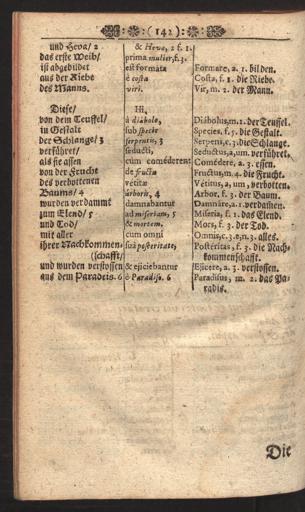 :(142):
und Heva/ 2
das erste Weib/
ist abgebildet
aus der Riebe
des Manns.
Diese/
von dem Teuffel/
in Gestalt
der Schlange/ 3
verführet/
als sie assen
von der Frucht
des verbottenen
Baums/ 4
wurden verdammt
zum Elend/ 5
und Tod/
mit aller
ihrer Nachkommen-
(schafft/
und wurden verstossen
aus dem Paradeis. 6
& Heva, 2 f. 1.
prima mulier, f. 3.
est formata
è costa
viri.
Hi,
à diabolo,
sub specie
serpentis, 3
seducti,
cum coméderent
de fructu
vétitæ
árboris, 4
damnabantur
ad miseriam, 5
& mortem,
cum omni
suâ posteritate,
& ejiciebantur
è Paradiso. 6
Formare, a. 1. bilden.
Costa, f. 1. die Riebe.
Vir, m. 2. der Mann.
Diábolus, m. 2. der Teuffel.
Species, f. 5. die Gestalt.
Serpens, c. 3. die Schlange.
Seductus, a, um. verführet.
Comédere, a. 3. essen.
Fructus, m. 4. die Frucht.
Vétitus, a, um, verbotten.
Arbor, f. 3. der Baum.
Damnáre, a. 1. verdamen.
Miseria, f. 1. das Elend.
Mors, f. 3. der Tod.
Omnis, c. 3. e, n. 3. alles.
Postéritas, f. 3. die Nach-
kommenschafft.
Ejicere, a. 3. verstossen.
Paradisus, m. 2. das Pa-
radis.
Die